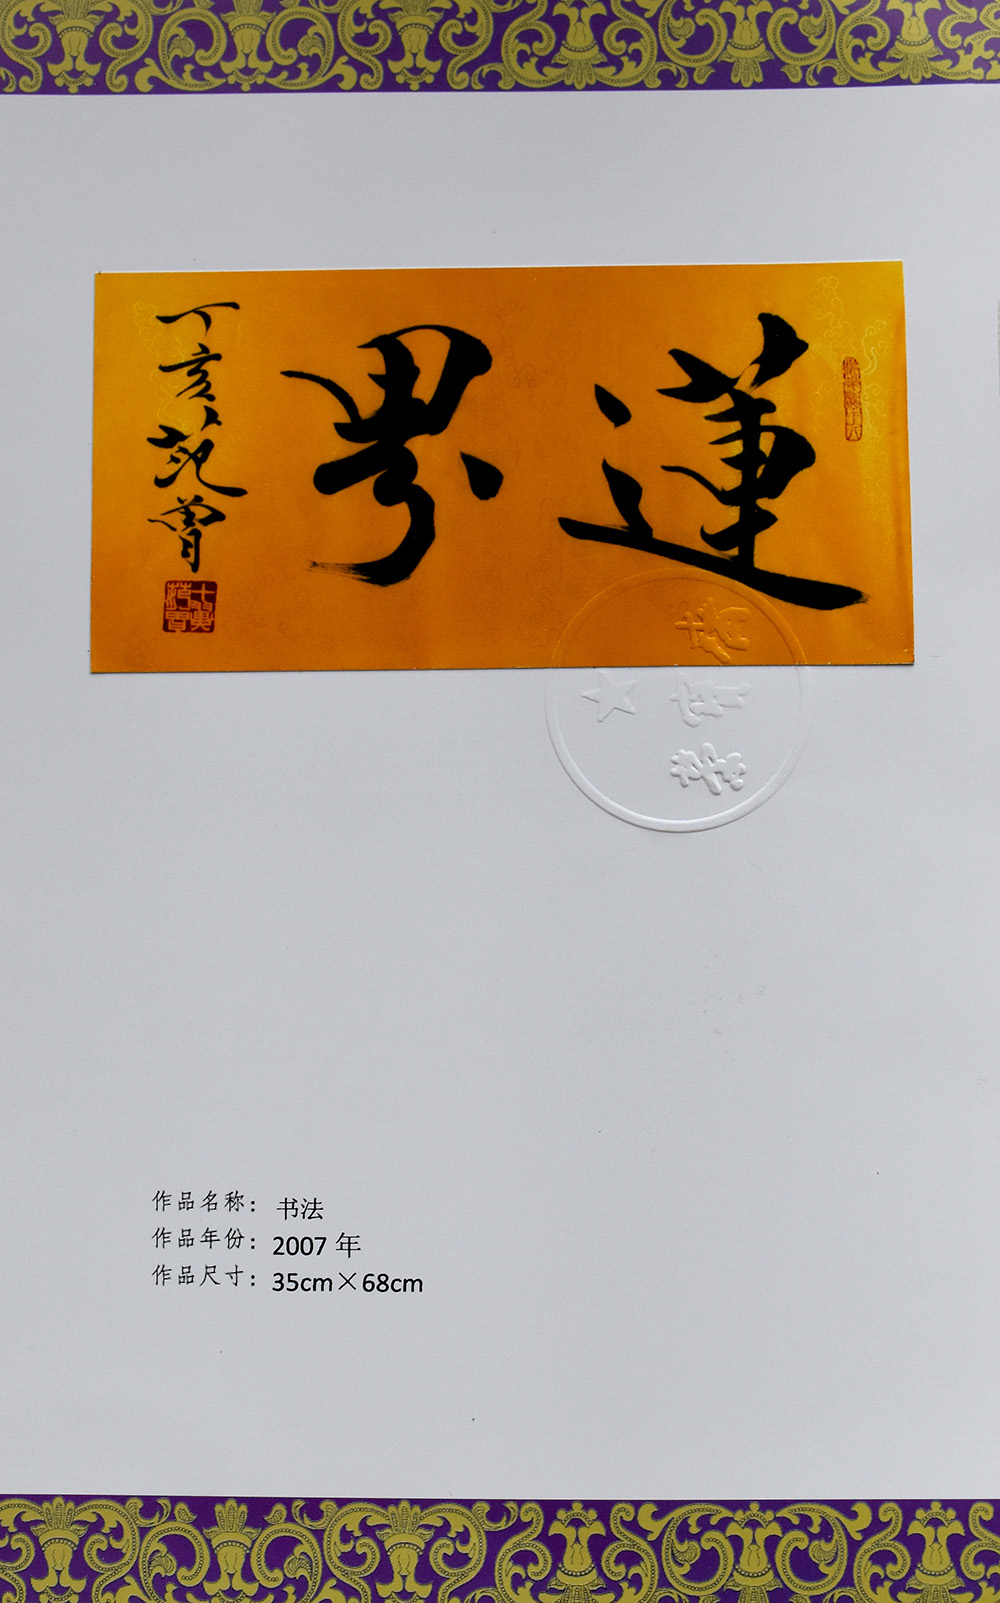 蓮界
丁亥范曾
十翼范曾
作品名称：书法
作品年份：2007 年
作品尺寸：35cm×68cm